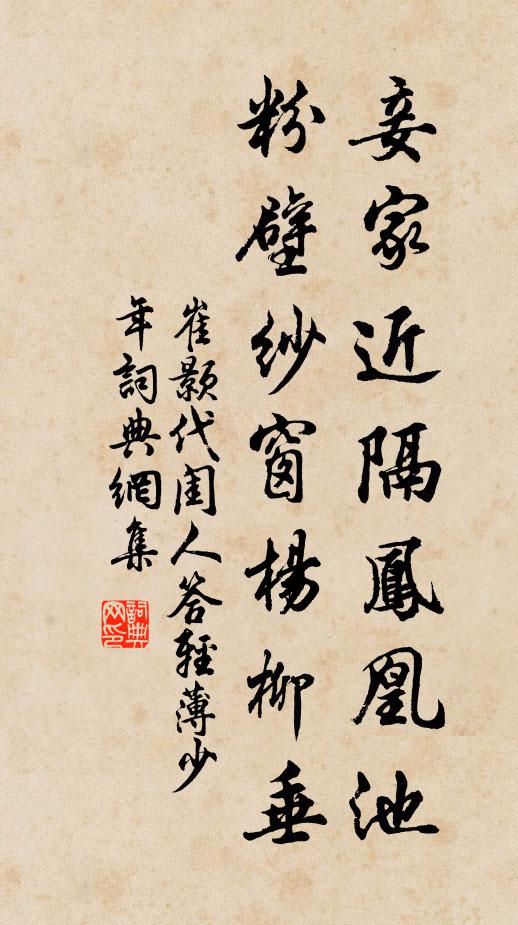 妾家近隔鳳凰池
粉壁紗窗楊柳垂
崔顥代閨人答輕薄少
年詞典網集
詞典網印